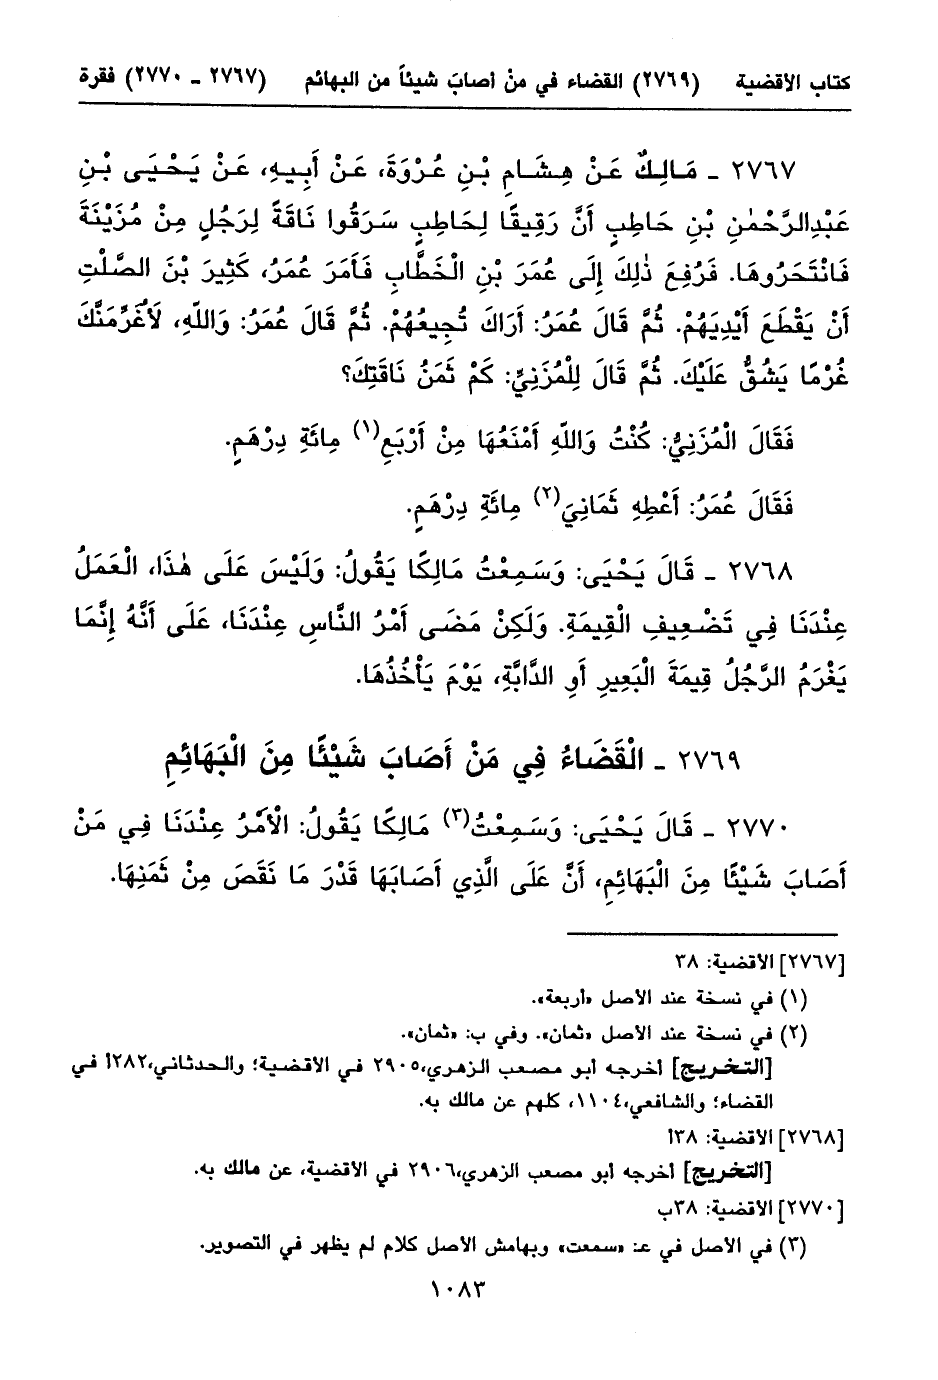 كتاب الأقضية (٢٧٦٩) القضاء في منْ أصابَ شيئاً من البهائم (٢٧٦٧ ـ ٢٧٧٠) فقرة
٢٧٦٧ ـ مَالِكٌ عَنْ هِشَامِ بْنِ عُرْوَةَ، عَنْ أَبِيهِ، عَنْ يَحْيَى بْنِ
عَبْدِالرَّحْمٰنِ بْنِ حَاطِبٍ أَنَّ رَقِيقًا لِحَاطِبٍ سَرَقُوا نَاقَةً لِرَجُلٍ مِنْ مُزَيْنَةَ
فَانْتَحَرُوهَا. فَرُفِعَ ذٰلِكَ إِلَى عُمَرَ بْنِ الْخَطَّابِ فَأَمَرَ عُمَرُ، كَثِيرَ بْنَ الصَّلْتِ
أَنْ يَقْطَعَ أَيْدِيَهُمْ. ثُمَّ قَالَ عُمَرُ: أَرَاكَ تُجِيعُهُمْ. ثُمَّ قَالَ عُمَرُ: وَاللّٰهِ، لَأُغَرِّمَنَّكَ
غُرْمًا يَشُقُّ عَلَيْكَ. ثُمَّ قَالَ لِلْمُزَنِيِّ: كَمْ ثَمَنُ نَاقَتِكَ؟
فَقَالَ الْمُزَنِيُّ: كُنْتُ وَاللّٰهِ أَمْنَعُهَا مِنْ أَرْبَعِ(١) مِائَةِ دِرْهَمٍ.
فَقَالَ عُمَرُ: أَعْطِهِ ثَمَانِيَ(٢) مِائَةِ دِرْهَمٍ.
٢٧٦٨ ـ قَالَ يَحْيَى: وَسَمِعْتُ مَالِكًا يَقُولُ: وَلَيْسَ عَلَى هٰذَا، الْعَمَلُ
عِنْدَنَا فِي تَضْعِيفِ الْقِيمَةِ. وَلَكِنْ مَضَى أَمْرُ النَّاسِ عِنْدَنَا، عَلَى أَنَّهُ إِنَّمَا
يَغْرَمُ الرَّجُلُ قِيمَةَ الْبَعِيرِ أَوِ الدَّابَّةِ، يَوْمَ يَأْخُذُهَا.
٢٧٦٩ ـ الْقَضَاءُ فِي مَنْ أَصَابَ شَيْئًا مِنَ الْبَهَائِمِ
٢٧٧٠ ـ قَالَ يَحْيَى: وَسَمِعْتُ(٣) مَالِكًا يَقُولُ: الْأَمْرُ عِنْدَنَا فِي مَنْ
أَصَابَ شَيْئًا مِنَ الْبَهَائِمِ، أَنَّ عَلَى الَّذِي أَصَابَهَا قَدْرَ مَا نَقَصَ مِنْ ثَمَنِهَا.
[٢٧٦٧] الأقضية: ٣٨
(١) في نسخة عند الأصل «أربعة».
(٢) في نسخة عند الأصل «ثمان». وفي ب: «ثمان».
[التخريج] أخرجه أبو مصعب الزهري،٢٩٠٥ في الأقضية؛ والحدثاني،٢٨٢أ في
القضاء؛ والشافعي،١١٠٤، كلهم عن مالك به.
[٢٧٦٨] الأقضية: ٣٨أ
[التخريج] أخرجه أبو مصعب الزهري،٢٩٠٦ في الأقضية، عن مالك به.
[٢٧٧٠] الأقضية: ٣٨ب
(٣) في الأصل في عـ: «سمعت» وبهامش الأصل كلام لم يظهر في التصوير.
١٠٨٣